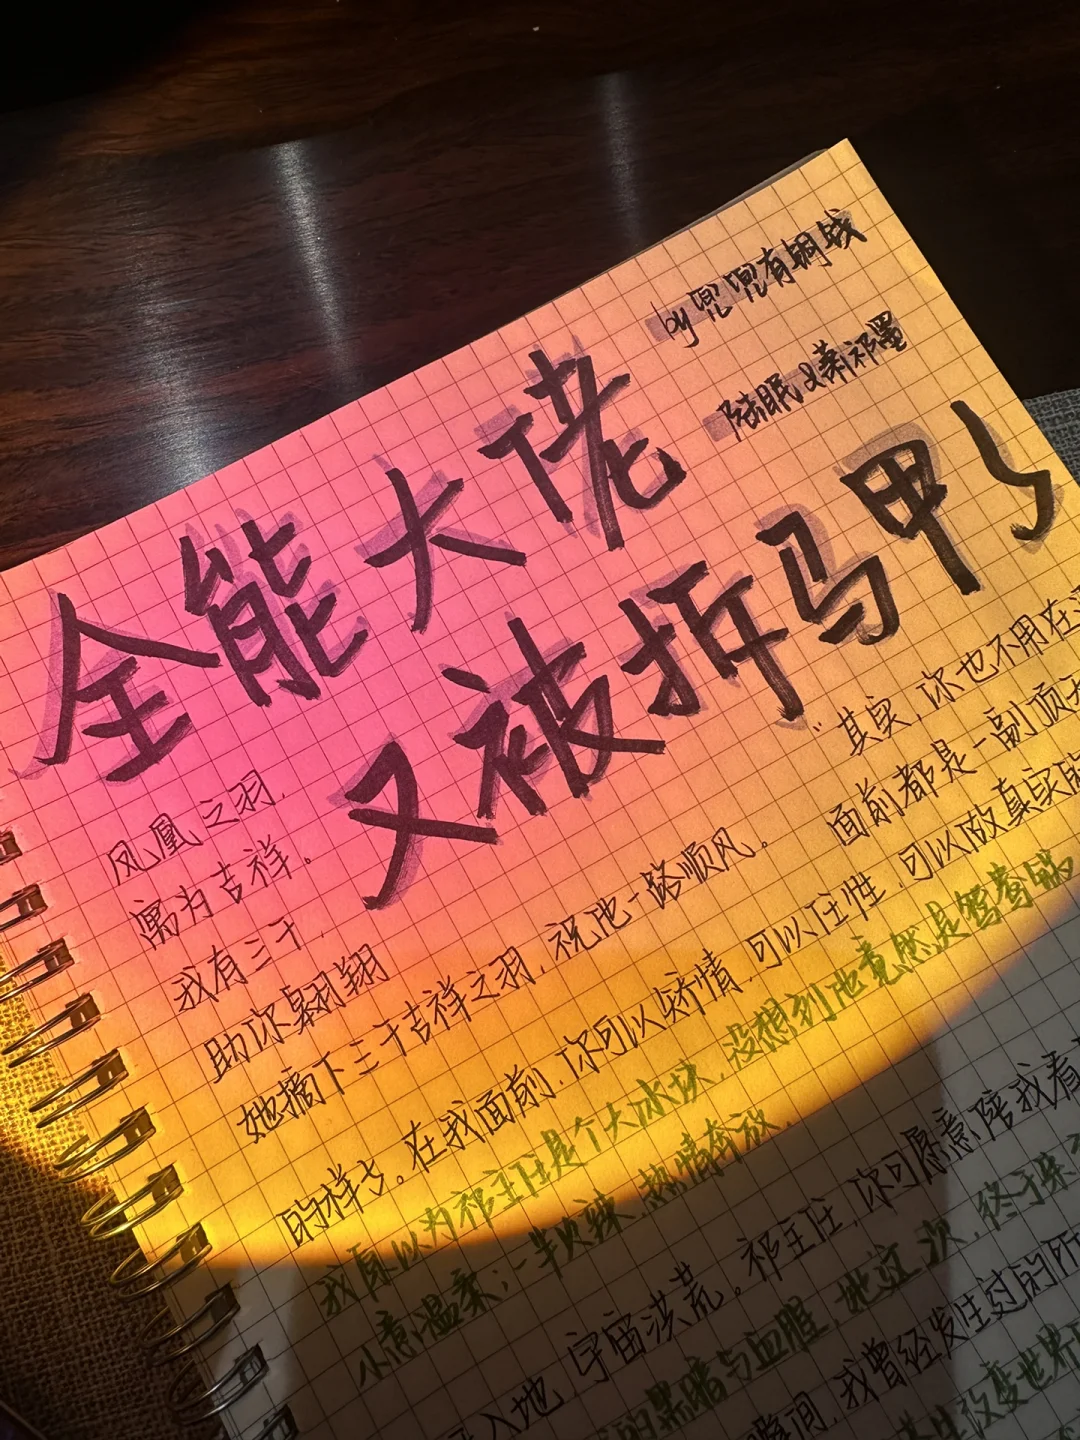 by 兜兜有铜钱
陆眠 又 萧祁墨
全能大佬
又被拆马甲了
凤凰之羽,
寓为吉祥。
我有三千,
助你翱翔
她摘下三千吉祥之羽,祝他一路顺风。
"其实,你也不用在
面前都是一副顶
的样子。在我面前,你可以矫情,可以任性,可以做真实的
我原以为祁主任是个大冰块,没想到他竟然是鸳鸯锅
小意温柔;一半火辣,热情奔放。
入地,宇宙洪荒。祁主任,你可愿意陪我看
的黑暗与血腥,她这次,终于
瞬间,我曾经发生过的所
改变世界